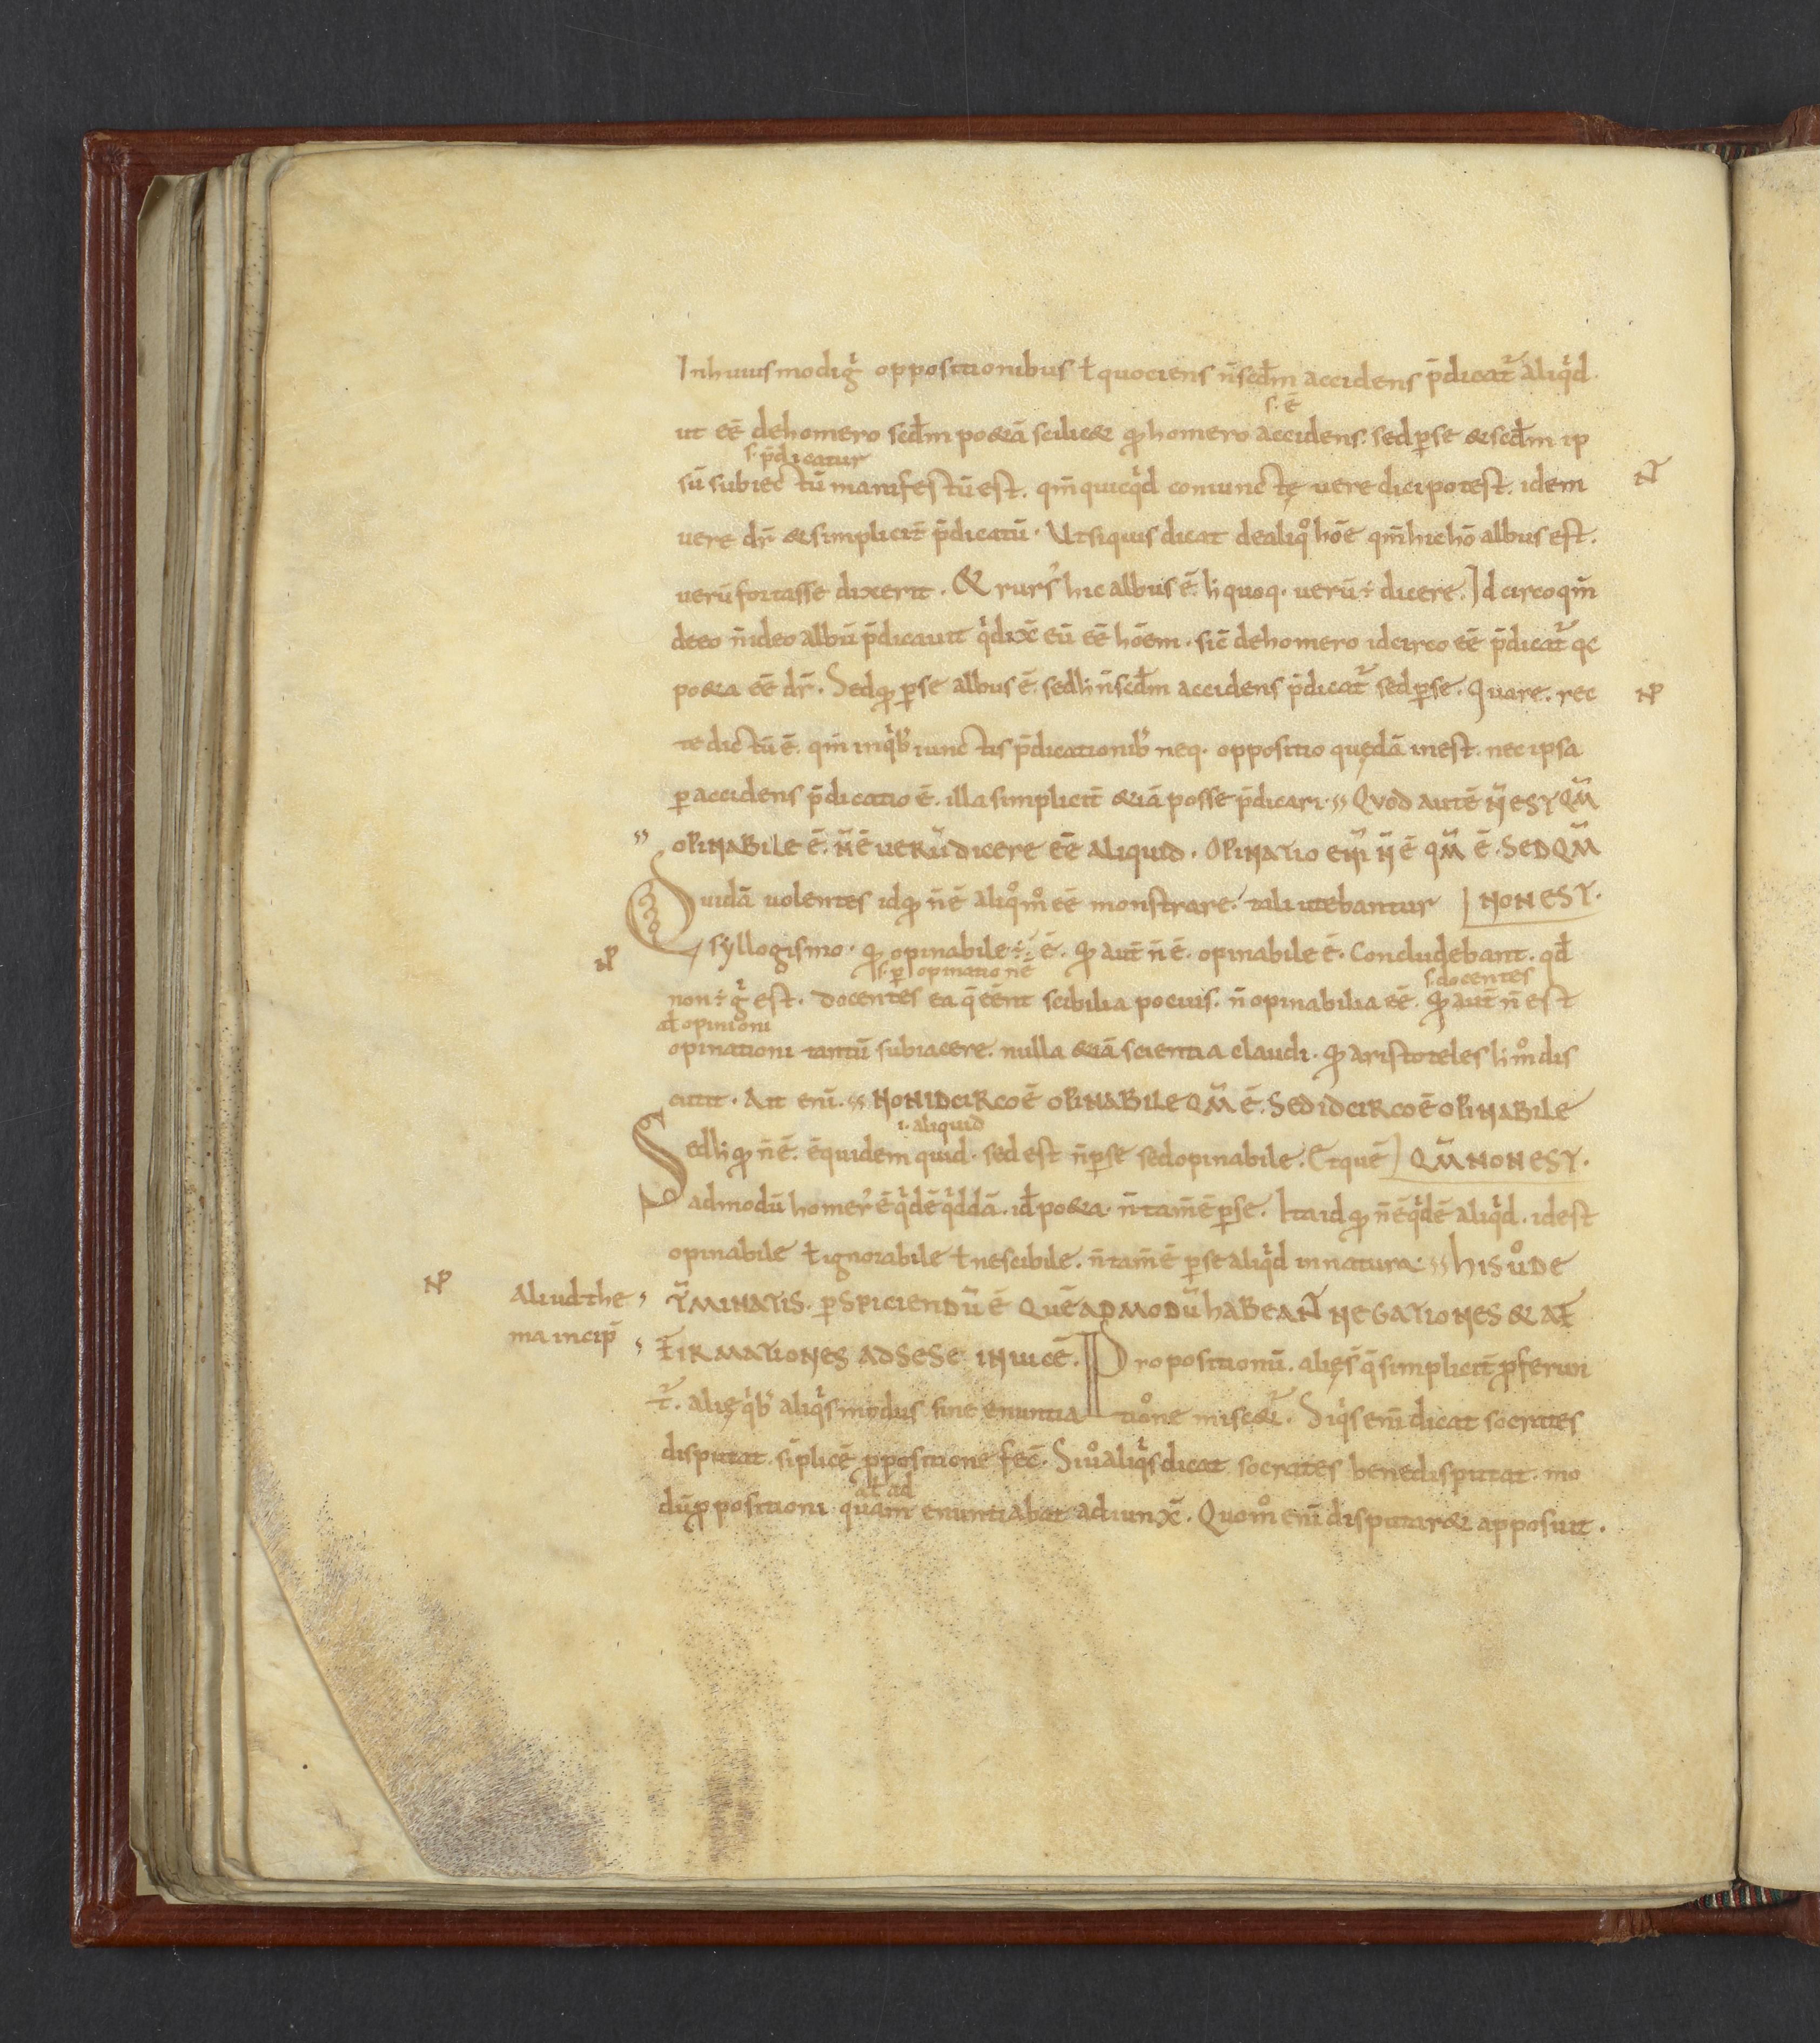 Inhuiusmodigͥ oppositionibus ł quociens n̄ scdm̄ accidens p̄dicat᷑ aliqͥd.
s. ē
ut eē dehomero scdm̄ po&ā scilic& qđ homero accidens. sed ꝑse &scdm̄ ip
s. p̄dicatur
sū subiectū manifestū est. qm̄ quicqͥd coniunctę uere dici potest. idem
N̄
uere dr̄ &simplicit̄ p̄dicatū. Ut siquis dicat dealiqͦ hōe qm̄ hic hō albus est.
uerū fortasse dixerit. & rurs᾽ hic albus ē. h quoq. uerū ÷ dicere. Idcirco qm̄
deeo n̄ ideo albū p̄dicauit qͥ dix̄ eū eē hōem. sic̄ dehomero idcirco eē p̄dicat᷑ qc
po&a eē dr̄. Sed qđ ꝑse albus ē. sed h n̄ scdm̄ accidens p̄dicat᷑ sed ꝑse. Quare. rec
te dictū ē. qm̄ inqͥb᾽ iunctis p̄dicationib᾽ neq. oppositio quędā inest. nec ipsa
ꝑ accidens p̄dicatio ē. illa simplicit̄ &iā posse p̄dicari. QVOD AUTĒ N̄ EST QM̄
OPINABILE Ē. N̄ Ē VERŪ DICERE EĒ ALIQUID. OPINATIO ENI̅ N̄ Ē QM̄ Ē. SED QM̄
Quidā uolentes id qđ n̄ ē aliqͦmͦ eē monstrare. tali utebantur | NON EST.
syllogismo. qđ opinabile ÷. ē. qđ aut̄ n̄ ē. opinabile ē. Concludebant. qđ
s. ꝑ opinationē
s. docentes
non ÷ gͥ est. docentes ea q̄ eēnt scibilia pocius. n̄ opinabilia eē. qđ aut̄ n̄ est
ał opinioni
opinationi tantū subiacere. nulla &iā scientia claudi. qđ aristoteles h mͦ dis
cutit. Ait enī. NON IDCIRCO Ē OPINABILE QM̄ Ē. SED IDCIRCO Ē OPINABILE
i. aliquid
Sed h qđ n̄ ē. ē quidem quid. sed est n̄ ꝑse sed opinabile. Et quē | QM̄ NON EST.
admodū homer᾽ ē qͥdē qͥddā. id po&a. n̄ tam̄ ē ꝑse. Ita id qđ n̄ ē qͥdē aliqͥd. id est
opinabile ł ignorabile ł nescibile. n̄ tam̄ ē ꝑse aliqͥd in natura. HIS Uͦ DE
Aliud the
T̄MINATIS. ꝑSPICIENDŪ Ē QUĒADMODŪ HABEANT̄ NEGATIONES & AF
ma incip̄
FIRMATIONES AD SESE INUICĒ. Propositionū. alięs᾽ q̄ simplicit̄ ꝓferun
t᷑. alię qͥb᾽ aliqͥs modus sine enuntiatiͦone misc&᷑. Siqͥs enī dicat socrates
disputat. siplicē ꝓpositione fec̄. Siuͦ aliqͥs dicat socrates bene disputat. mo
ał ad
dū ꝓpositioni quam enuntiabat adiunx̄. Quomͦ enī disputar& apposuit.